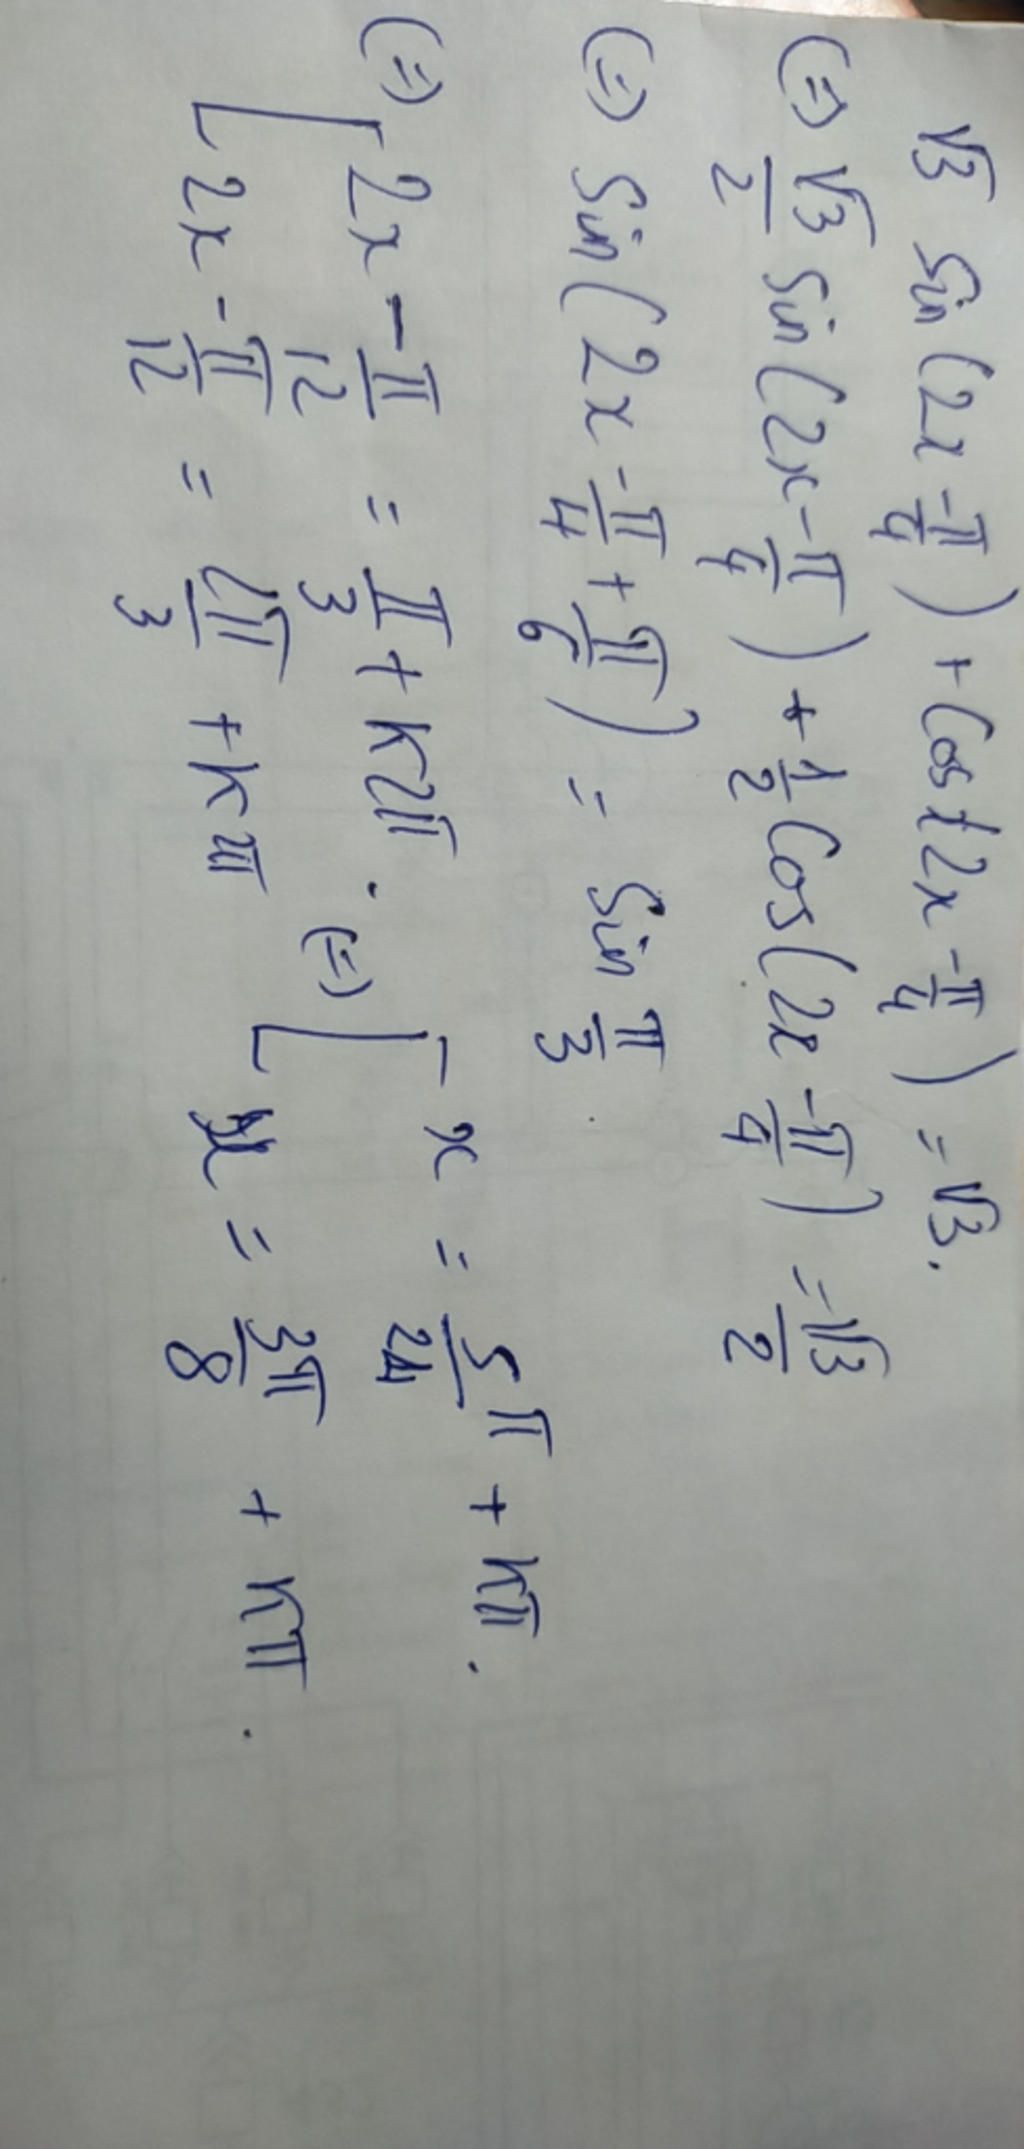 √3 Sin(2x - π/4) + Cos(2x - π/4) = √3.
(=) √3/2 Sin(2x - π/4) + 1/2 Cos(2x - π/4) = √3/2
(=) Sin(2x - π/4 + π/6) = Sin π/3
(=) [ 2x - π/12 = π/3 + k2π. (=) [ x = 5/24 π + kπ.
2x - π/12 = 2π/3 + k2π x = 3π/8 + kπ.